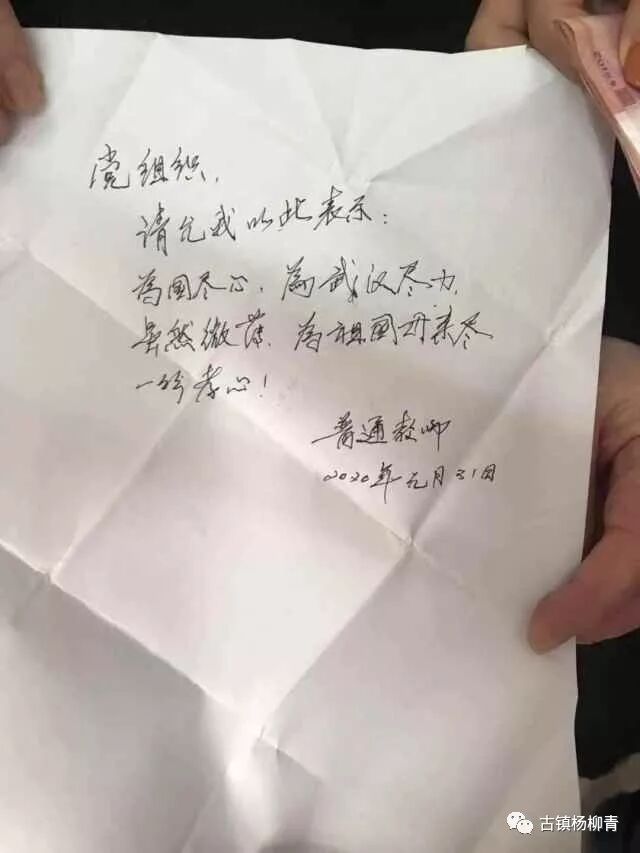 党组织,
请允我以此表示:
为国尽心、为武汉尽力,
虽然微薄、为祖国母亲尽
一份孝心!
普通教师
2020年元月31日
古镇杨柳青